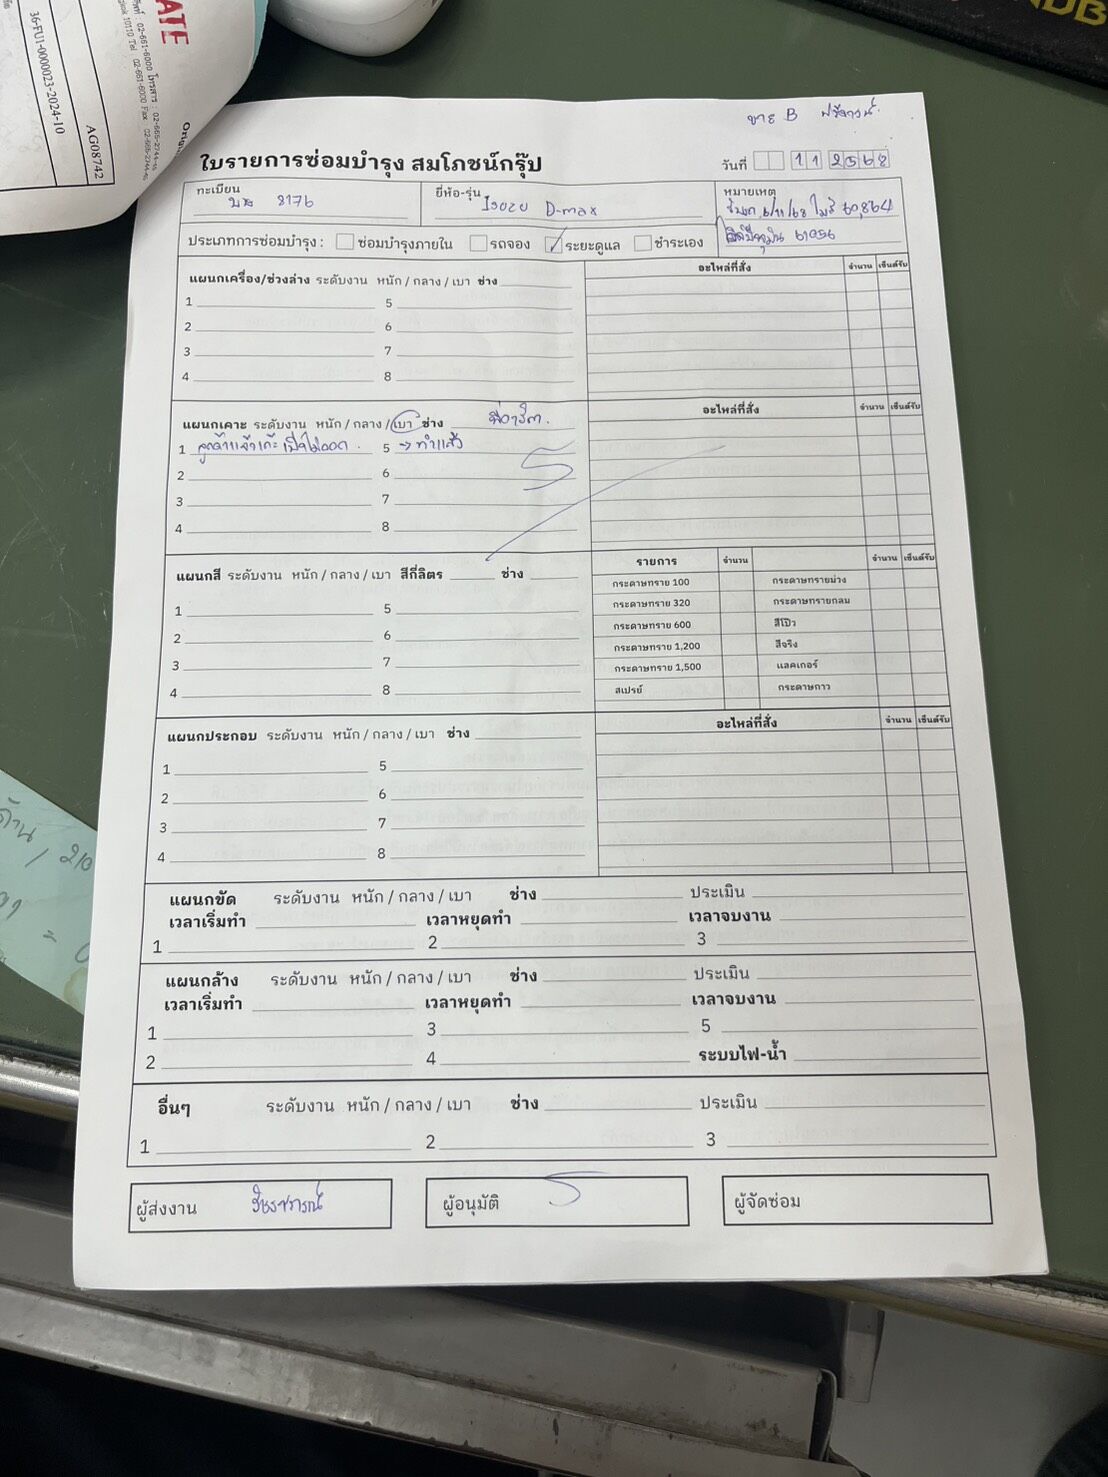 ATE
36-FU1-0000023-2024-10
AG08742
ขาย B
ใบรายการซ่อมบำรุง สมโภชน์กรุ๊ป
วันที่ 11 2568
ทะเบียน
8176
ยี่ห้อ-รุ่น
Isuzu D-max
หมายเหตุ
6/11/68 ไมล์ 60,864
61056
ประเภทการซ่อมบำรุง : ซ่อมบำรุงภายใน รถจอง ระยะดูแล ชำระเอง
แผนกเครื่อง/ช่วงล่าง ระดับงาน หนัก / กลาง / เบา ช่าง
อะไหล่ที่สั่ง จำนวน เซ็นต์รับ
1 5
2 6
3 7
4 8
แผนกเคาะ ระดับงาน หนัก / กลาง / เบา ช่าง
อะไหล่ที่สั่ง จำนวน เซ็นต์รับ
1 5 → ทำแล้ว
2 6
3 7
4 8
แผนกสี ระดับงาน หนัก / กลาง / เบา สีกี่ลิตร ช่าง
รายการ จำนวน จำนวน เซ็นต์รับ
กระดาษทราย 100 กระดาษทรายม่วง
1 5 กระดาษทราย 320 กระดาษทรายกลม
2 6 กระดาษทราย 600 สีโป๊ว
กระดาษทราย 1,200 สีจริง
3 7 กระดาษทราย 1,500 แลคเกอร์
4 8 สเปรย์ กระดาษกาว
แผนกประกอบ ระดับงาน หนัก / กลาง / เบา ช่าง
อะไหล่ที่สั่ง จำนวน เซ็นต์รับ
1 5
2 6
3 7
4 8
แผนกขัด ระดับงาน หนัก / กลาง / เบา ช่าง ประเมิน
เวลาเริ่มทำ เวลาหยุดทำ เวลาจบงาน
1 2 3
แผนกล้าง ระดับงาน หนัก / กลาง / เบา ช่าง ประเมิน
เวลาเริ่มทำ เวลาหยุดทำ เวลาจบงาน
1 3 5
2 4 ระบบไฟ-น้ำ
อื่นๆ ระดับงาน หนัก / กลาง / เบา ช่าง ประเมิน
1 2 3
ผู้ส่งงาน
ผู้อนุมัติ
ผู้จัดซ่อม